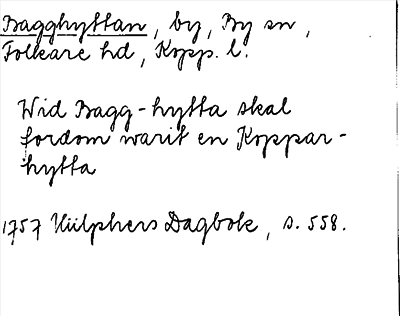 Bagghyttan, by, By sn,
Folkare hd, Kopp. l.
Wid Bagg-hytta skal
fordom warit en Koppar-
hytta
1757 Hülphers Dagbok, s. 558.